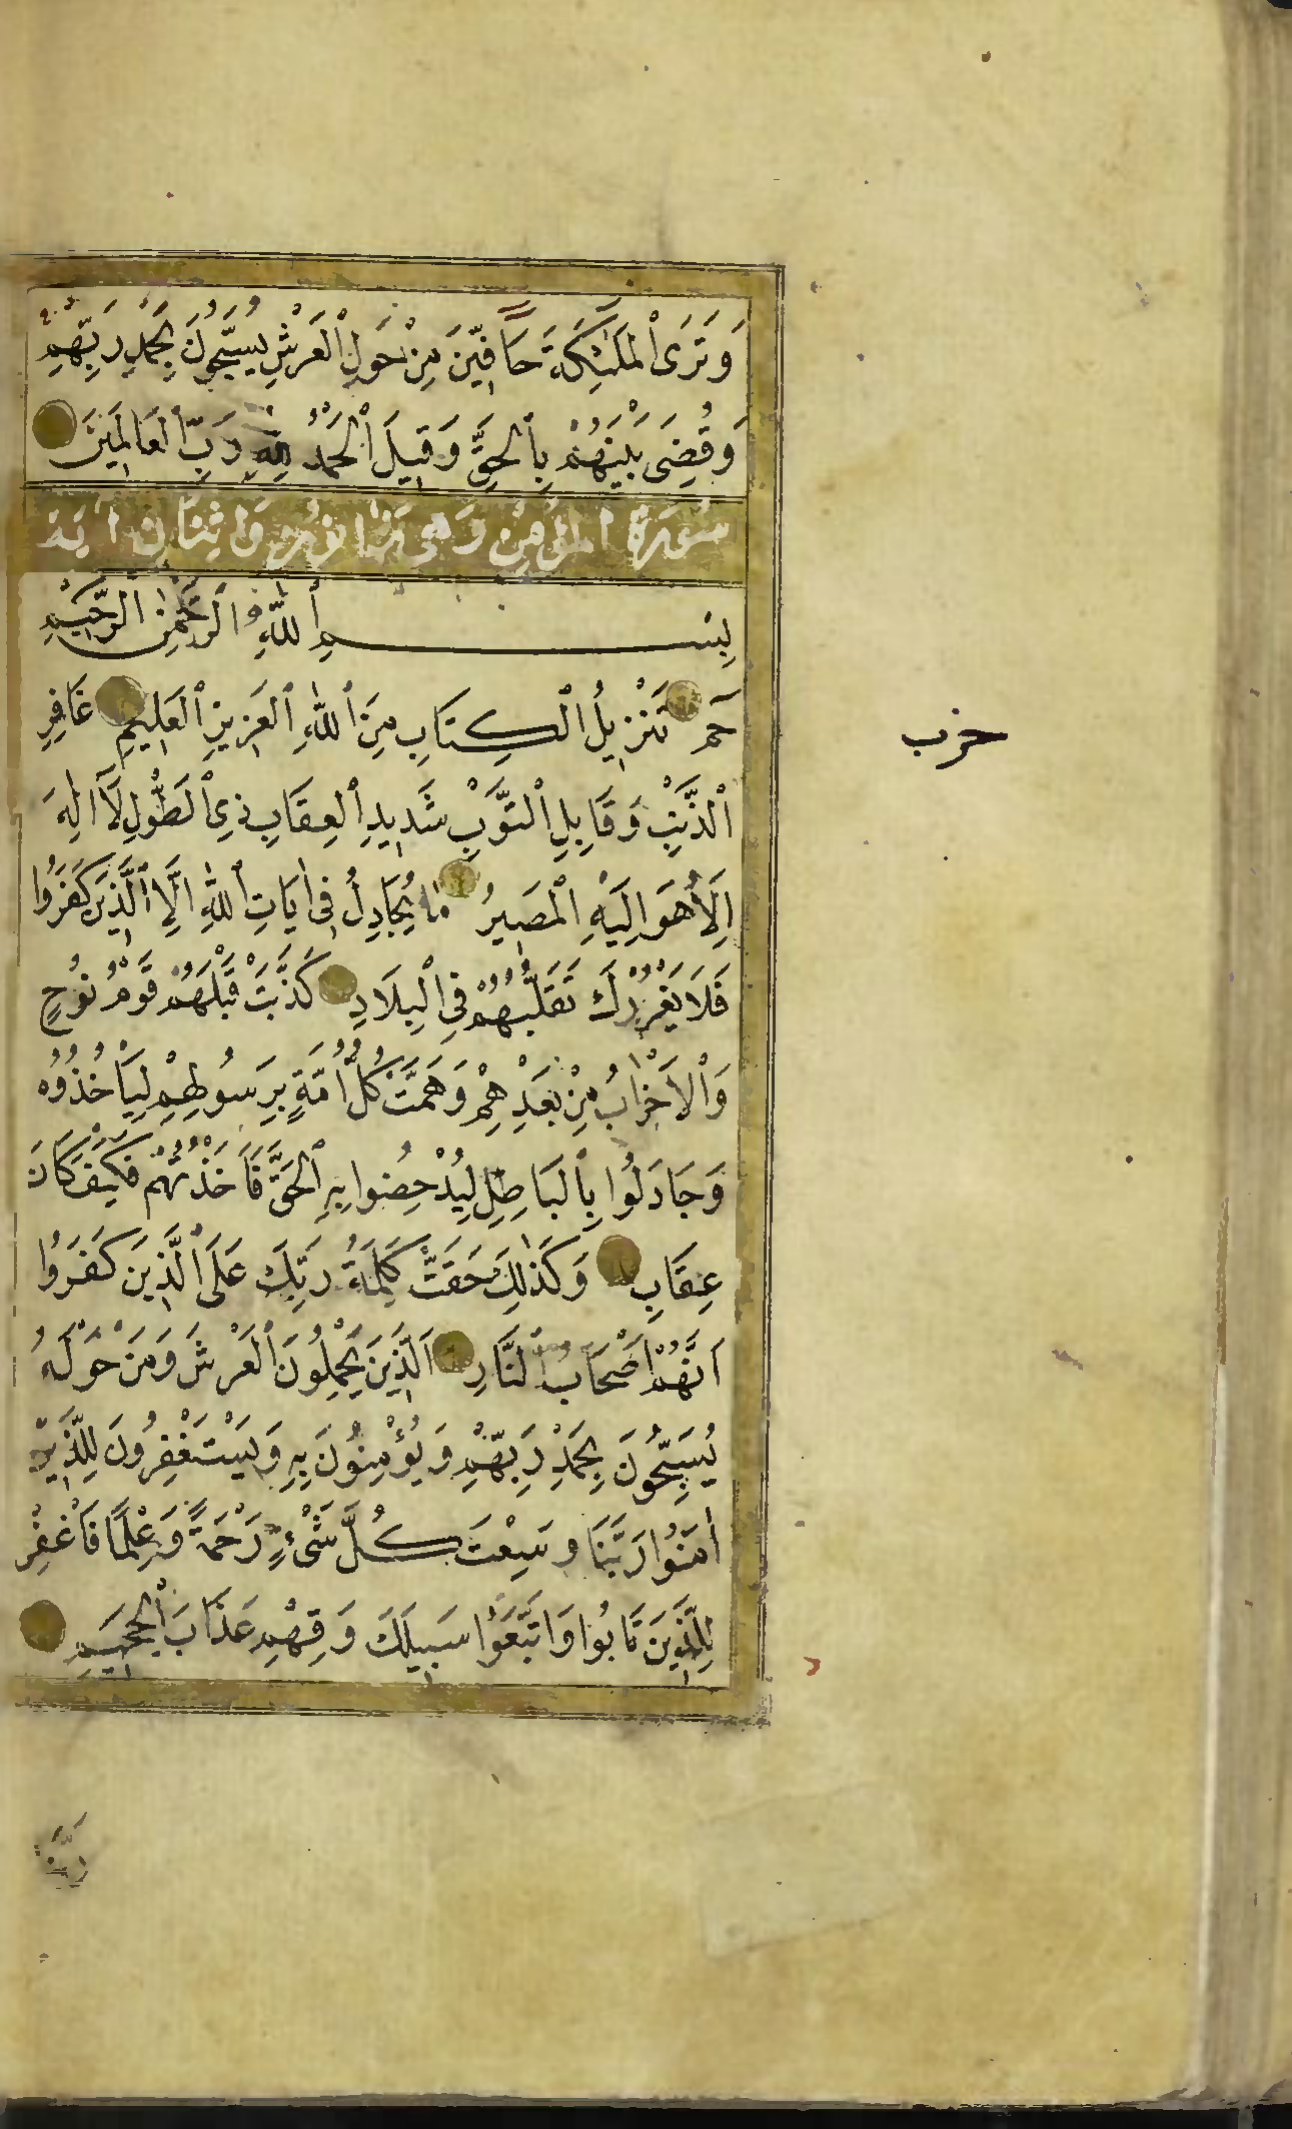 وَتَرَى الْمَلَٰئِكَةَ حَافِّينَ مِنْ حَوْلِ الْعَرْشِ يُسَبِّحُونَ بِحَمْدِ رَبِّهِمْ
وَقُضِىَ بَيْنَهُمْ بِالْحَقِّ وَقِيلَ الْحَمْدُ لِلّٰهِ رَبِّ الْعَالَمِينَ
سُورَةُ الْمُؤْمِنِ وَهِىَ ثَمَانُونَ وَاثْنَانِ آيَة
بِسْمِ اللّٰهِ الرَّحْمٰنِ الرَّحِيمِ
حٰم تَنْزِيلُ الْكِتَابِ مِنَ اللّٰهِ الْعَزِيزِ الْعَلِيمِ غَافِرِ
حزب
الْذَّنْبِ وَقَابِلِ الْتَّوْبِ شَدِيدِ الْعِقَابِ ذِى الْطَّوْلِ لَا اِلٰهَ
اِلَّا هُوَ اِلَيْهِ الْمَصِيرُ مَا يُجَادِلُ فِى اٰيَاتِ اللّٰهِ اِلَّا الَّذِينَ كَفَرُوا
فَلَا يَغْرُرْكَ تَقَلُّبُهُمْ فِى الْبِلَادِ كَذَّبَتْ قَبْلَهُمْ قَوْمُ نُوحٍ
وَالْاَحْزَابُ مِنْ بَعْدِهِمْ وَهَمَّتْ كُلُّ اُمَّةٍ بِرَسُولِهِمْ لِيَأْخُذُوهُ
وَجَادَلُوا بِالْبَاطِلِ لِيُدْحِضُوا بِهِ الْحَقَّ فَاَخَذْتُهُمْ فَكَيْفَ كَانَ
عِقَابِ وَكَذٰلِكَ حَقَّتْ كَلِمَةُ رَبِّكَ عَلَى الَّذِينَ كَفَرُوا
اَنَّهُمْ اَصْحَابُ النَّارِ اَلَّذِينَ يَحْمِلُونَ الْعَرْشَ وَمَنْ حَوْلَهُ
يُسَبِّحُونَ بِحَمْدِ رَبِّهِمْ وَيُؤْمِنُونَ بِهِ وَيَسْتَغْفِرُونَ لِلَّذِينَ
اٰمَنُوا رَبَّنَا وَسِعْتَ كُلَّ شَىْءٍ رَحْمَةً وَعِلْمًا فَاغْفِرْ
لِلَّذِينَ تَابُوا وَاتَّبَعُوا سَبِيلَكَ وَقِهِمْ عَذَابَ الْجَحِيمِ
رَبَّنَا